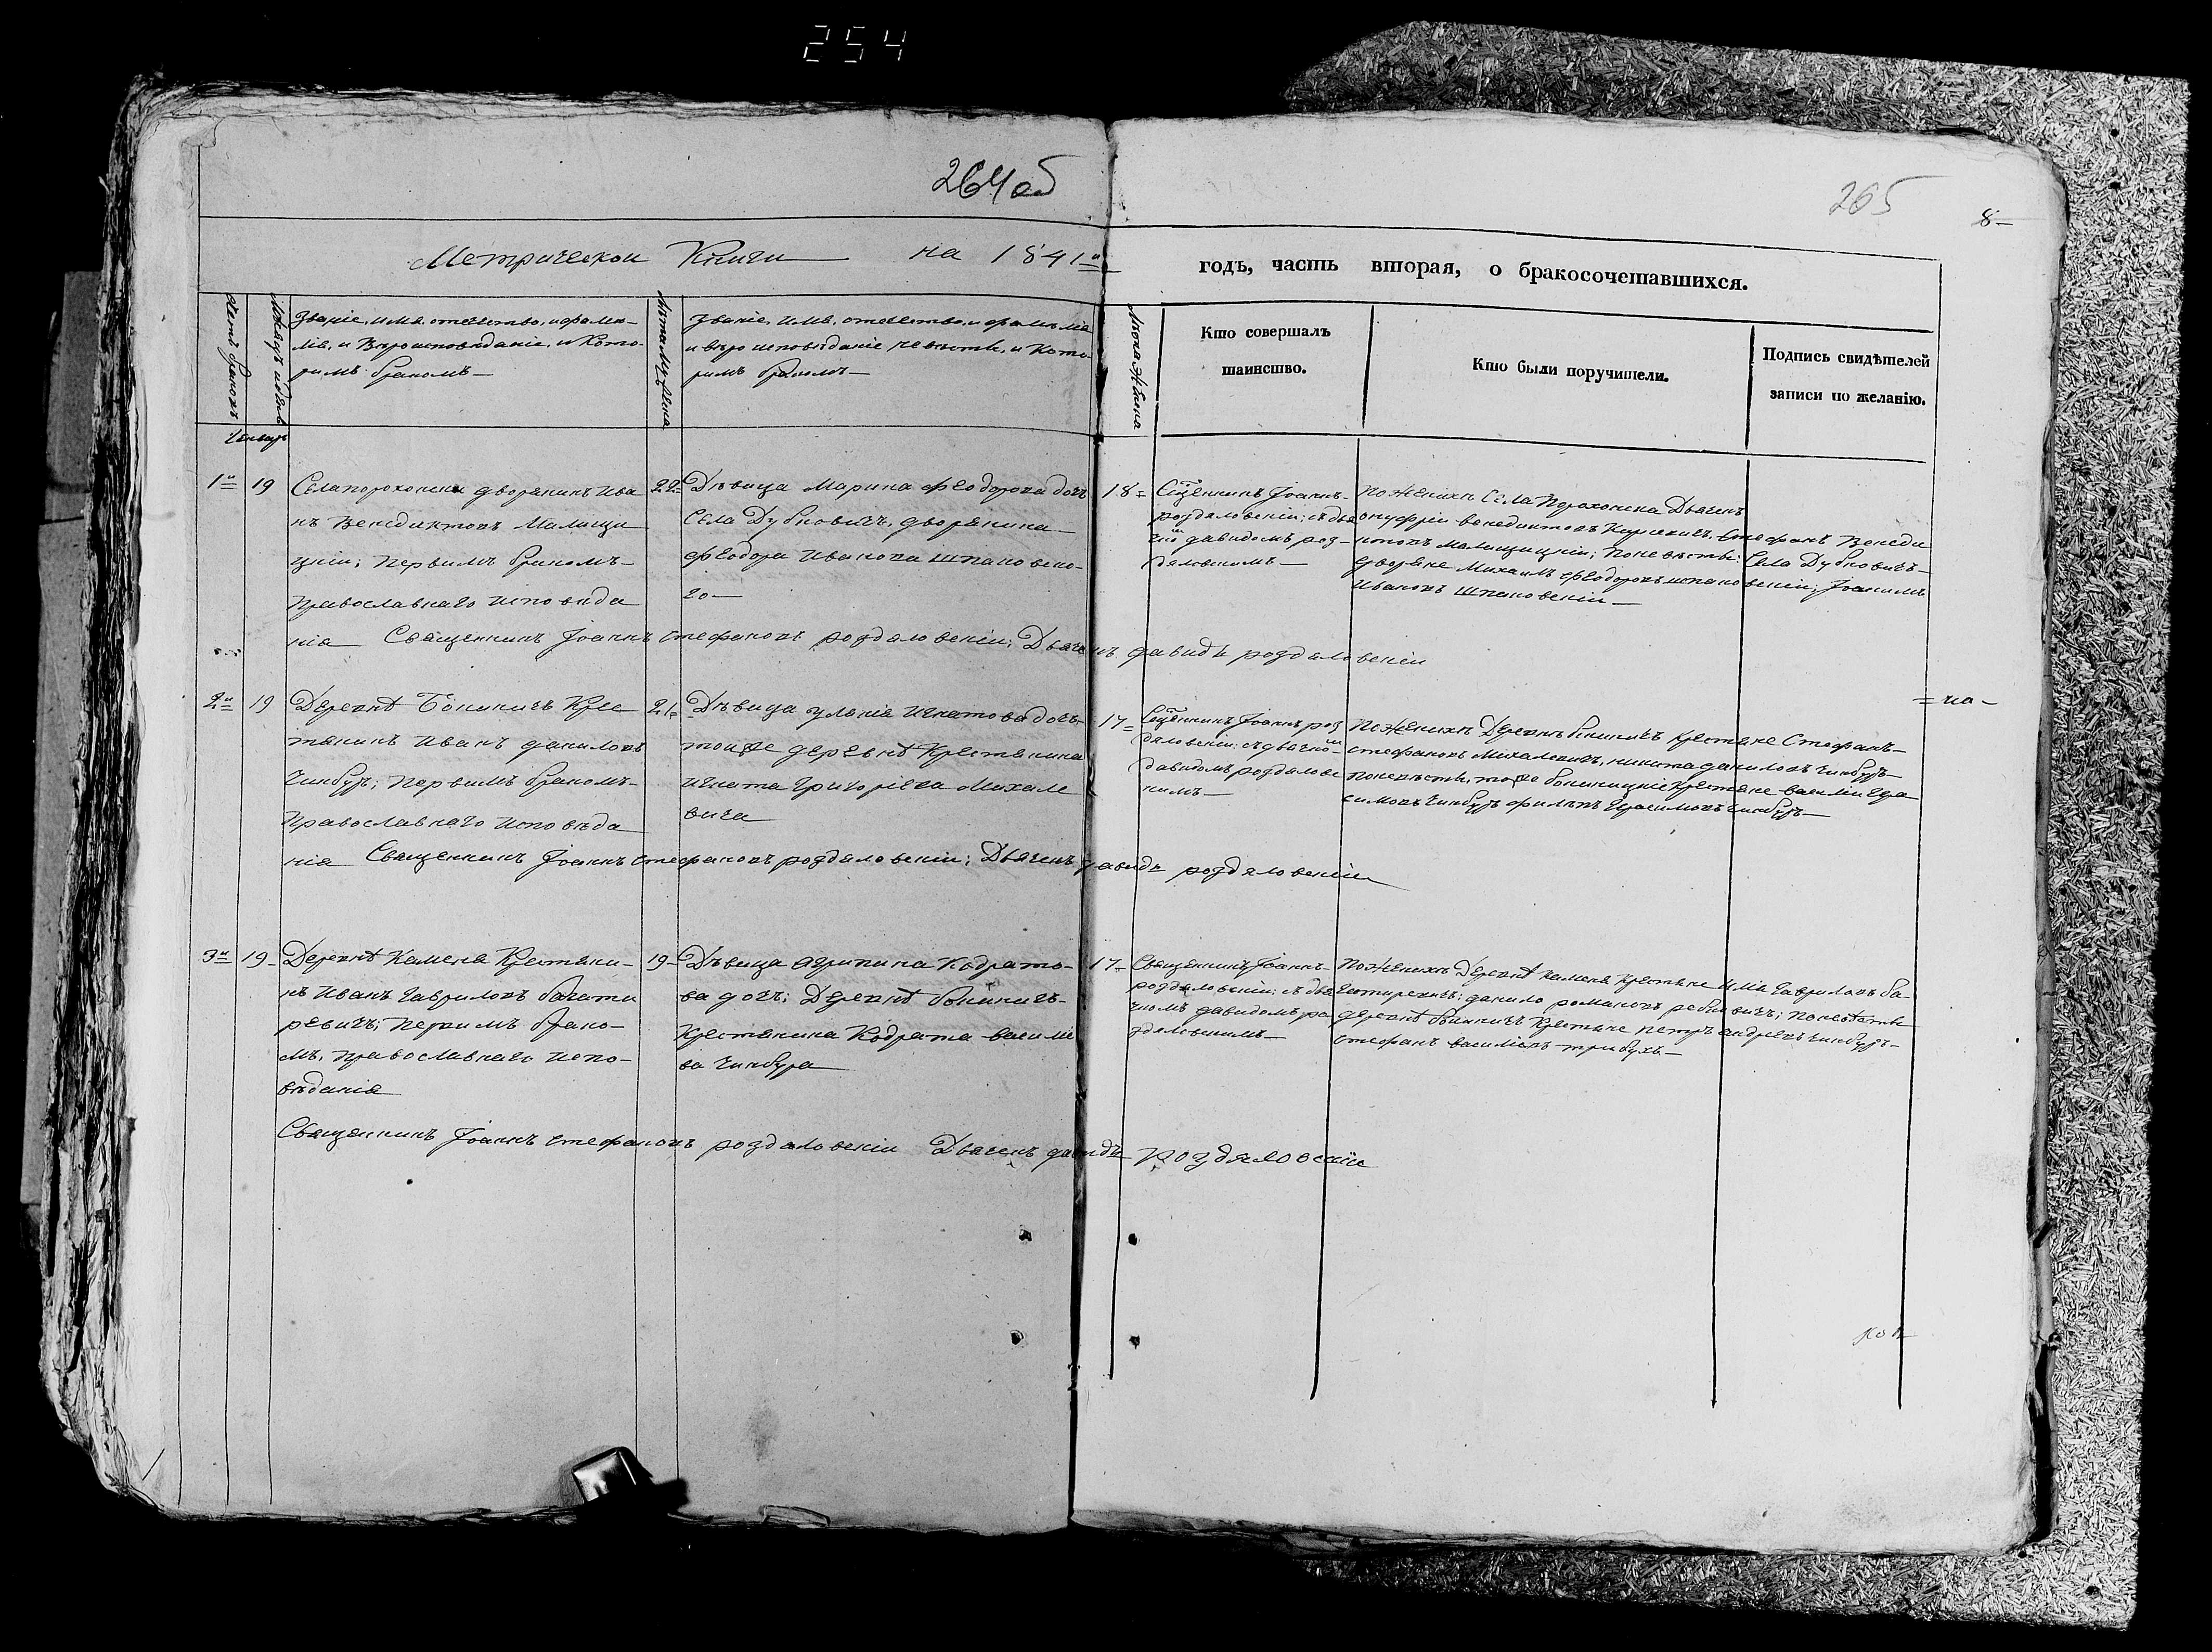 254
264 об
265
8
Метрической Книги на 1841й
годъ, часть вторая, о бракосочетавшихся.
Звание, имя, отечество, и фами-
лія, и Вѣроисповѣданіе, и Кото-
римъ бракомъ
Лѣта Мужена
Звание, имя, отечество, и фамилія
и вѣроисповѣданіе невѣсти, и Кото-
римъ бракомъ
Лѣта Жена
Кто совершалъ
таинство.
Кто были поручители.
Подпись свидѣтелей
записи по желанію.
Январь
1й 19
Села порохонска дворянинъ Ива
нъ Венедиктовъ Малищи
цкій; Первимъ браком-
Православнаго исповѣда
нія
22
Дѣвица Марина Феодорова дочь
Села Дубновичъ, дворянина
Феодора Иванова Шпановско-
го
18
Сщенникъ Іоаннъ-
роздяловскій; съ дья
чкомъ давидомъ роз-
дяловскимъ
По Женихѣ Села Порохонска Дьячекъ
онуфрій венедиктовъ Стефанъ Венеди
ктовъ Малищицкій; По невѣстѣ: Села Дубновичъ-
дворяне Михаилъ Феодоровъ шпановскій; Іоакимъ
Ивановъ Шпановскій
Священникъ Іоаннъ Стефановъ роздяловскій; Дьячекъ давидъ роздяловскій
2й 19
Деревнѣ Боиничъ Крес
тянинъ Иванъ даниловъ
Чинбуръ; Первимъ браком-
Православнаго Исповѣда
нія
21
Дѣвица Улянія Игнатова дочь-
тойже деревнѣ Крестянина
Игната Григоріева Михале
вича
17
Сщенникъ Іоаннъ роз
дяловскій: съ дьячком
давидомъ роздяловс
кимъ
По Женихѣ Деревнѣ Боиничъ Крестяне Стефанъ-
Стефановъ Михалевичъ, никита даниловъ Чинбуръ
По невѣстѣ, тоже Крестяне василій Гера
симовъ Чинбуръ филипъ Герасимовъ Чинбуръ
= на -
Священникъ Іоаннъ Стефановъ роздяловскій; Дьячекъ давидъ роздяловскій
3й 19
Деревнѣ Каменя Крестяни-
нъ Иванъ Гавриловъ багати
ревичъ; Первимъ брако-
мъ, православнаго испо-
вѣданія
19
Дѣвица Агрипина Кодрато-
ва дочь; Деревнѣ боиничъ-
Крестянина Кодрата василіе
ва Чинбура
17
Священникъ Іоаннъ-
роздяловскій; съ дья
чкомъ давидомъ ро
здяловскимъ
По Женихѣ Деревнѣ Каменя Крестяне Гавриловъ ба-
гатиревичъ; данило романовъ; По невѣстѣ
деревнѣ боиничъ Крестяне петръ андреевъ Чинбуръ-
Стефанъ василіевъ трибухъ
Священникъ Іоаннъ Стефановъ роздяловскій Дьячекъ давидъ роздяловскій